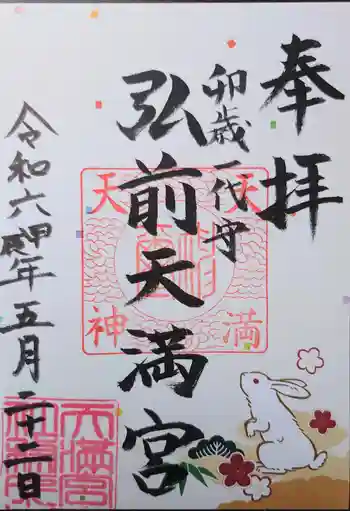 奉拝
卯歳一代守
弘前天満宮
令和六甲辰年五月二十二日
天満
天神